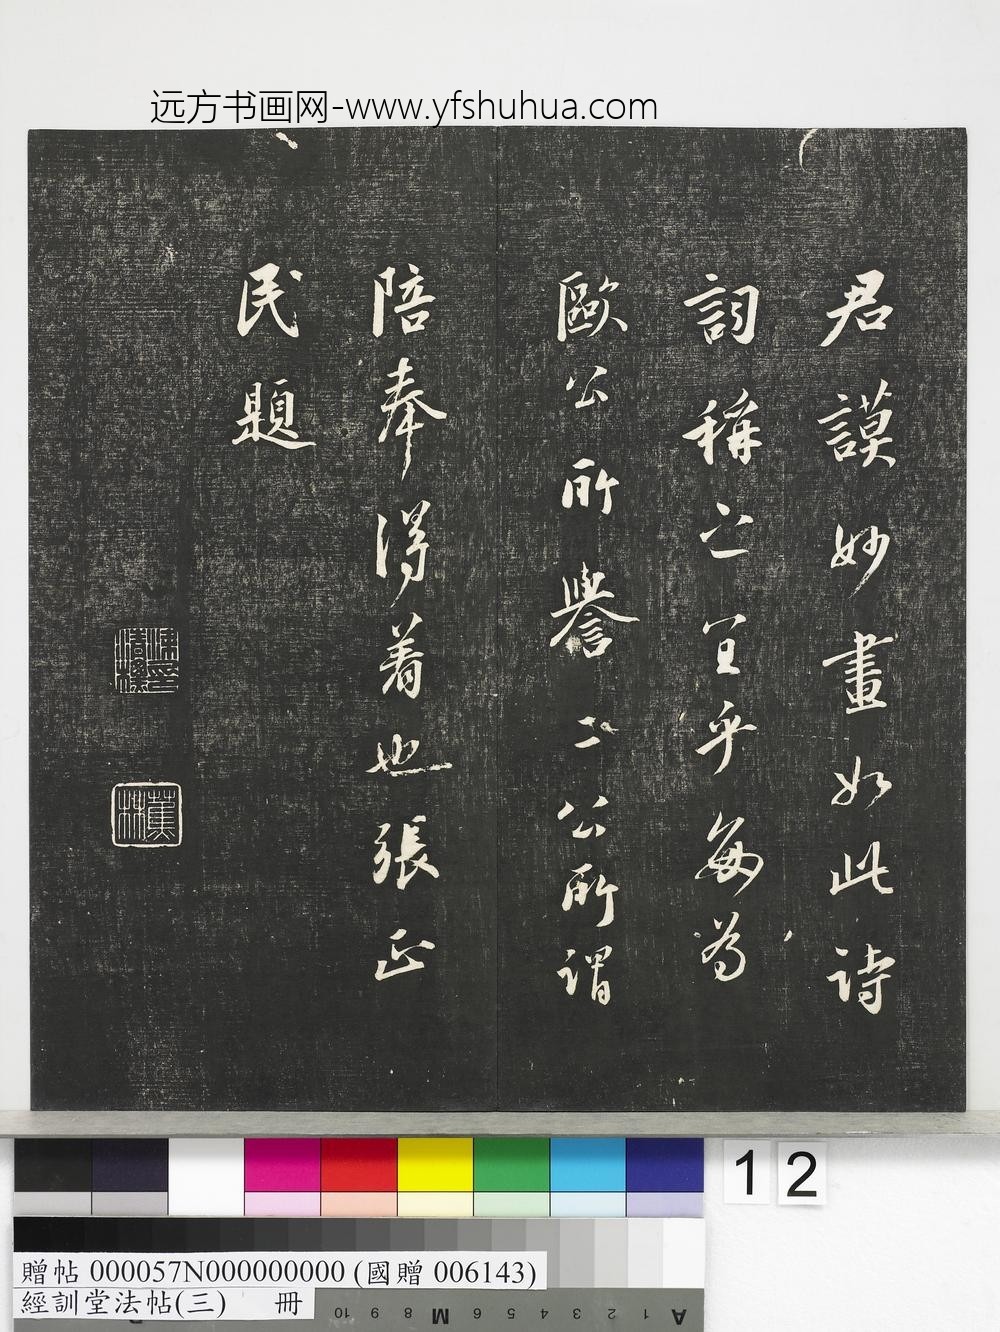 远方书画网-www.yfshuhua.com
君謨妙畫如此詩
詞稱之宜乎每為
歐公所譽二公所謂
陪奉得着也張正
民題
蕉林
12
贈帖 000057N000000000 (國贈 006143)
經訓堂法帖(三) 冊
10 9 8 7 6 M 5 4 3 2 1 A